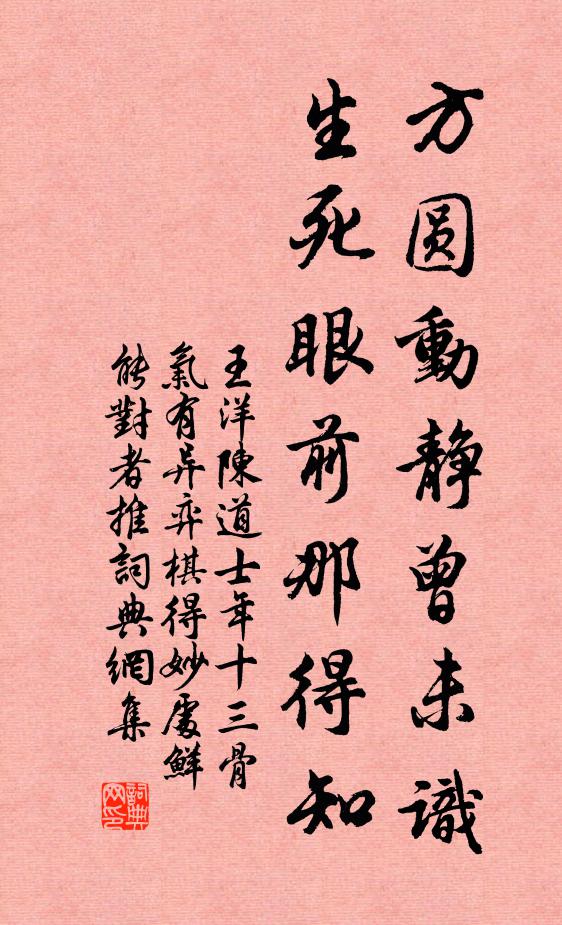 方圆動静曾未識
生死眼前那得知
王洋陳道士年十三骨
氣有异弈棋得妙處鮮
能對者推詞典網集
詞典
网印